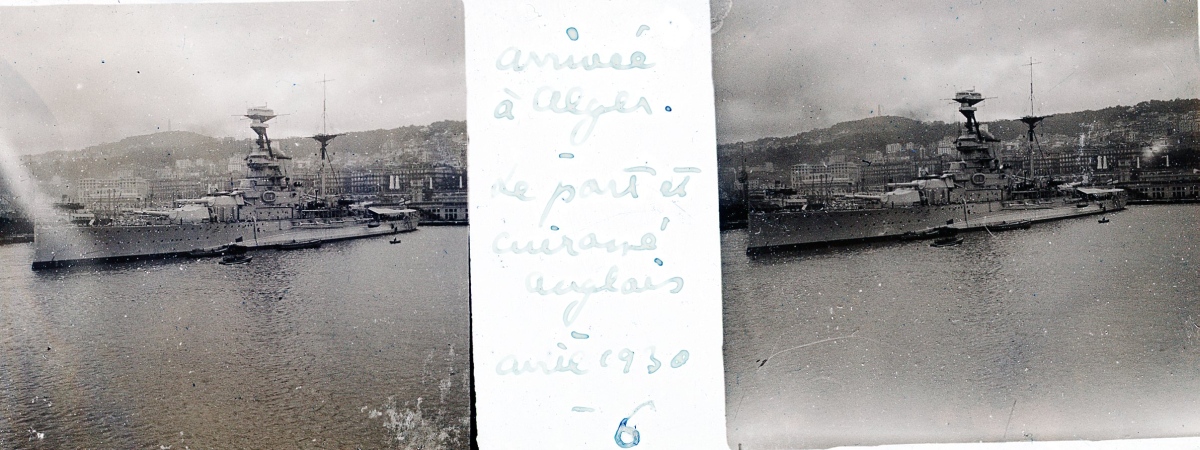 arrivée
à Alger.
-
Le port et
cuirassé
Anglais
-
avril 1930
- 6